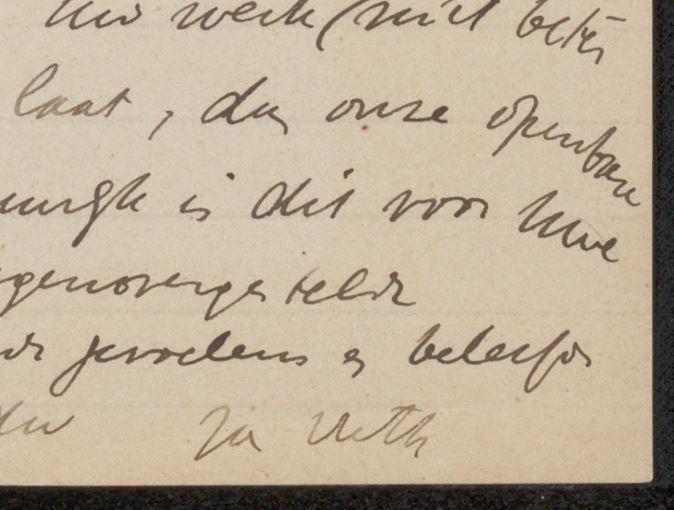 Uw werk (niet beter
laat, dan onze openbare
is dit voor Uwe
genovergestelde
gevoelens en beleefde
Jan Veth